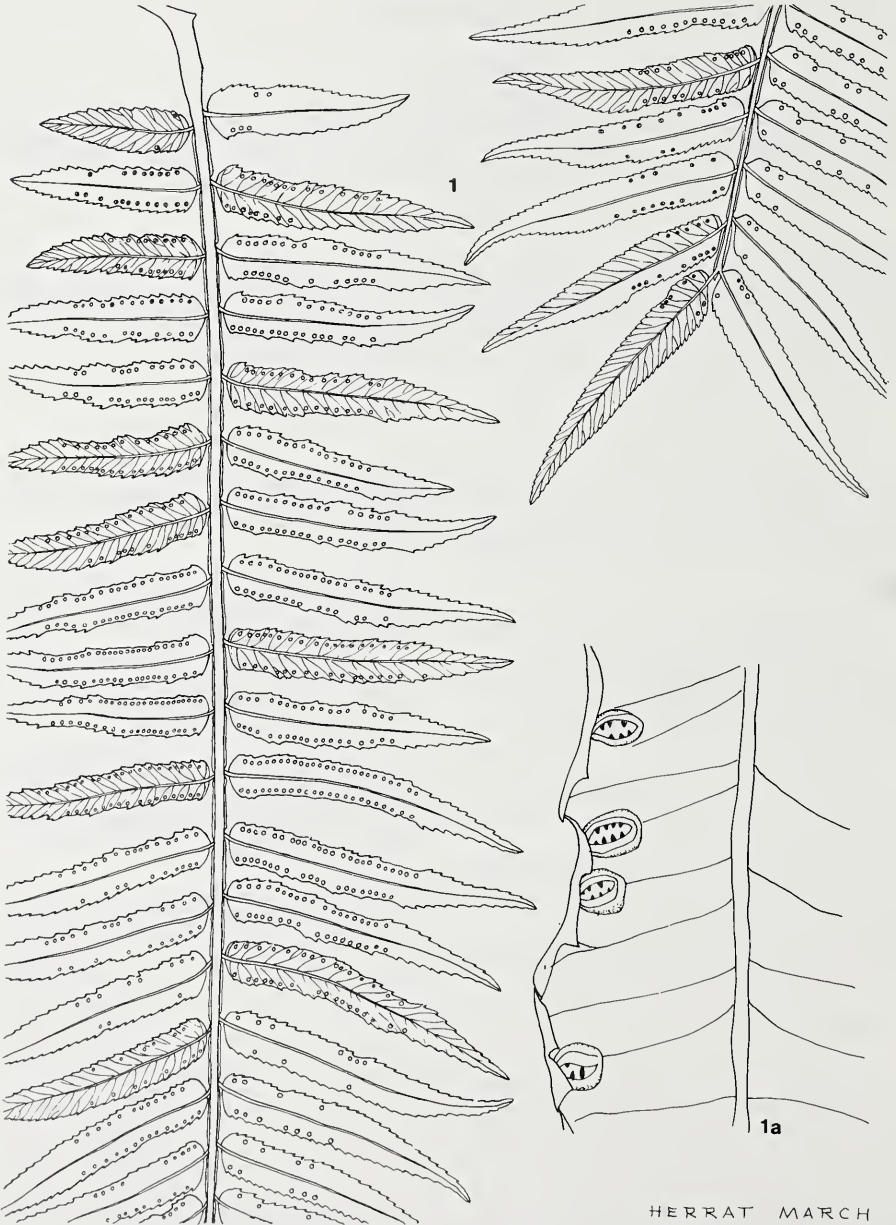 1
1a
HERRAT MARCH